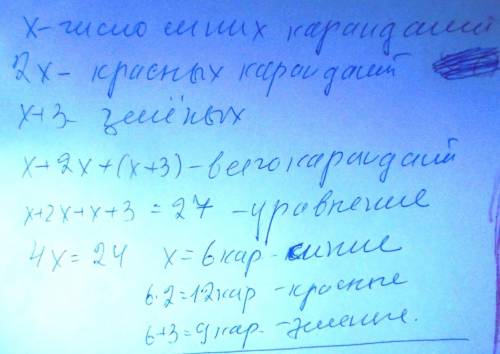 x - число синих карандашей
2x - красных карандашей
x+3 - зелёных
x+2x+(x+3) - всего карандашей
x+2x+x+3=27 - уравнение
4x=24 x=6 кар - синие
6·2=12 кар - красные
6+3=9 кар - зеленые.